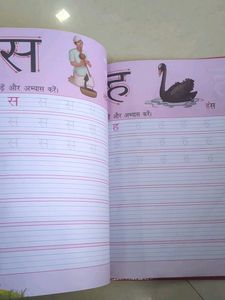 स
और अभ्यास करें।
स स स स
स स स स
ह
हंस
और अभ्यास करें।
ह ह ह ह
ह ह ह